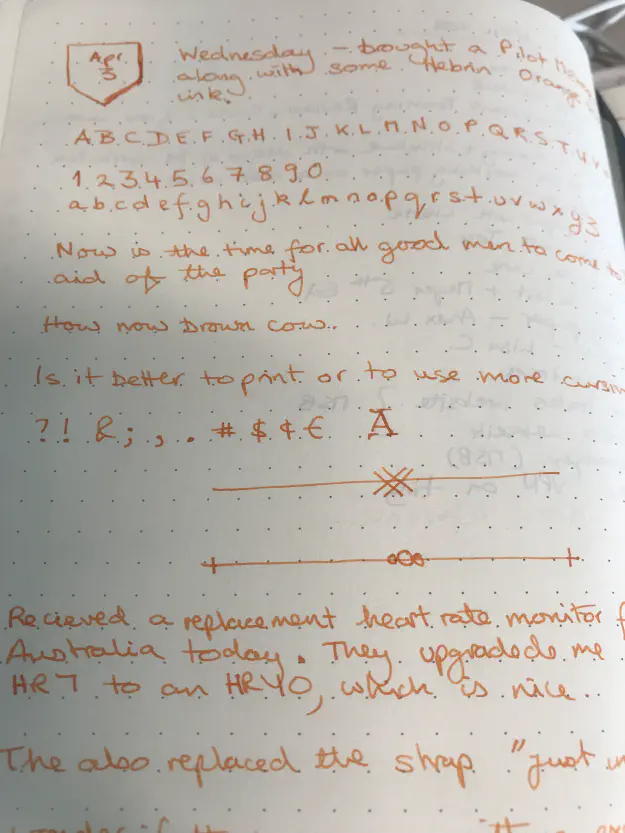 Apr
3
Wednesday – brought a Pilot
along with some Hebrin Orange
ink.
A B C D E F G H I J K L M N O P Q R S T U V
1 2 3 4 5 6 7 8 9 0
a b c d e f g h i j k l m n o p q r s t u v w x y z
Now is the time for all good men to come to
aid of the party
How now brown cow..
Is it better to print or to use more
? ! & ; , . # $ ¢ € A
Recieved a replacement heart rate monitor
Australia today. They upgradede me
HR7 to an HR40, which is nice..
The also replaced the strap "just